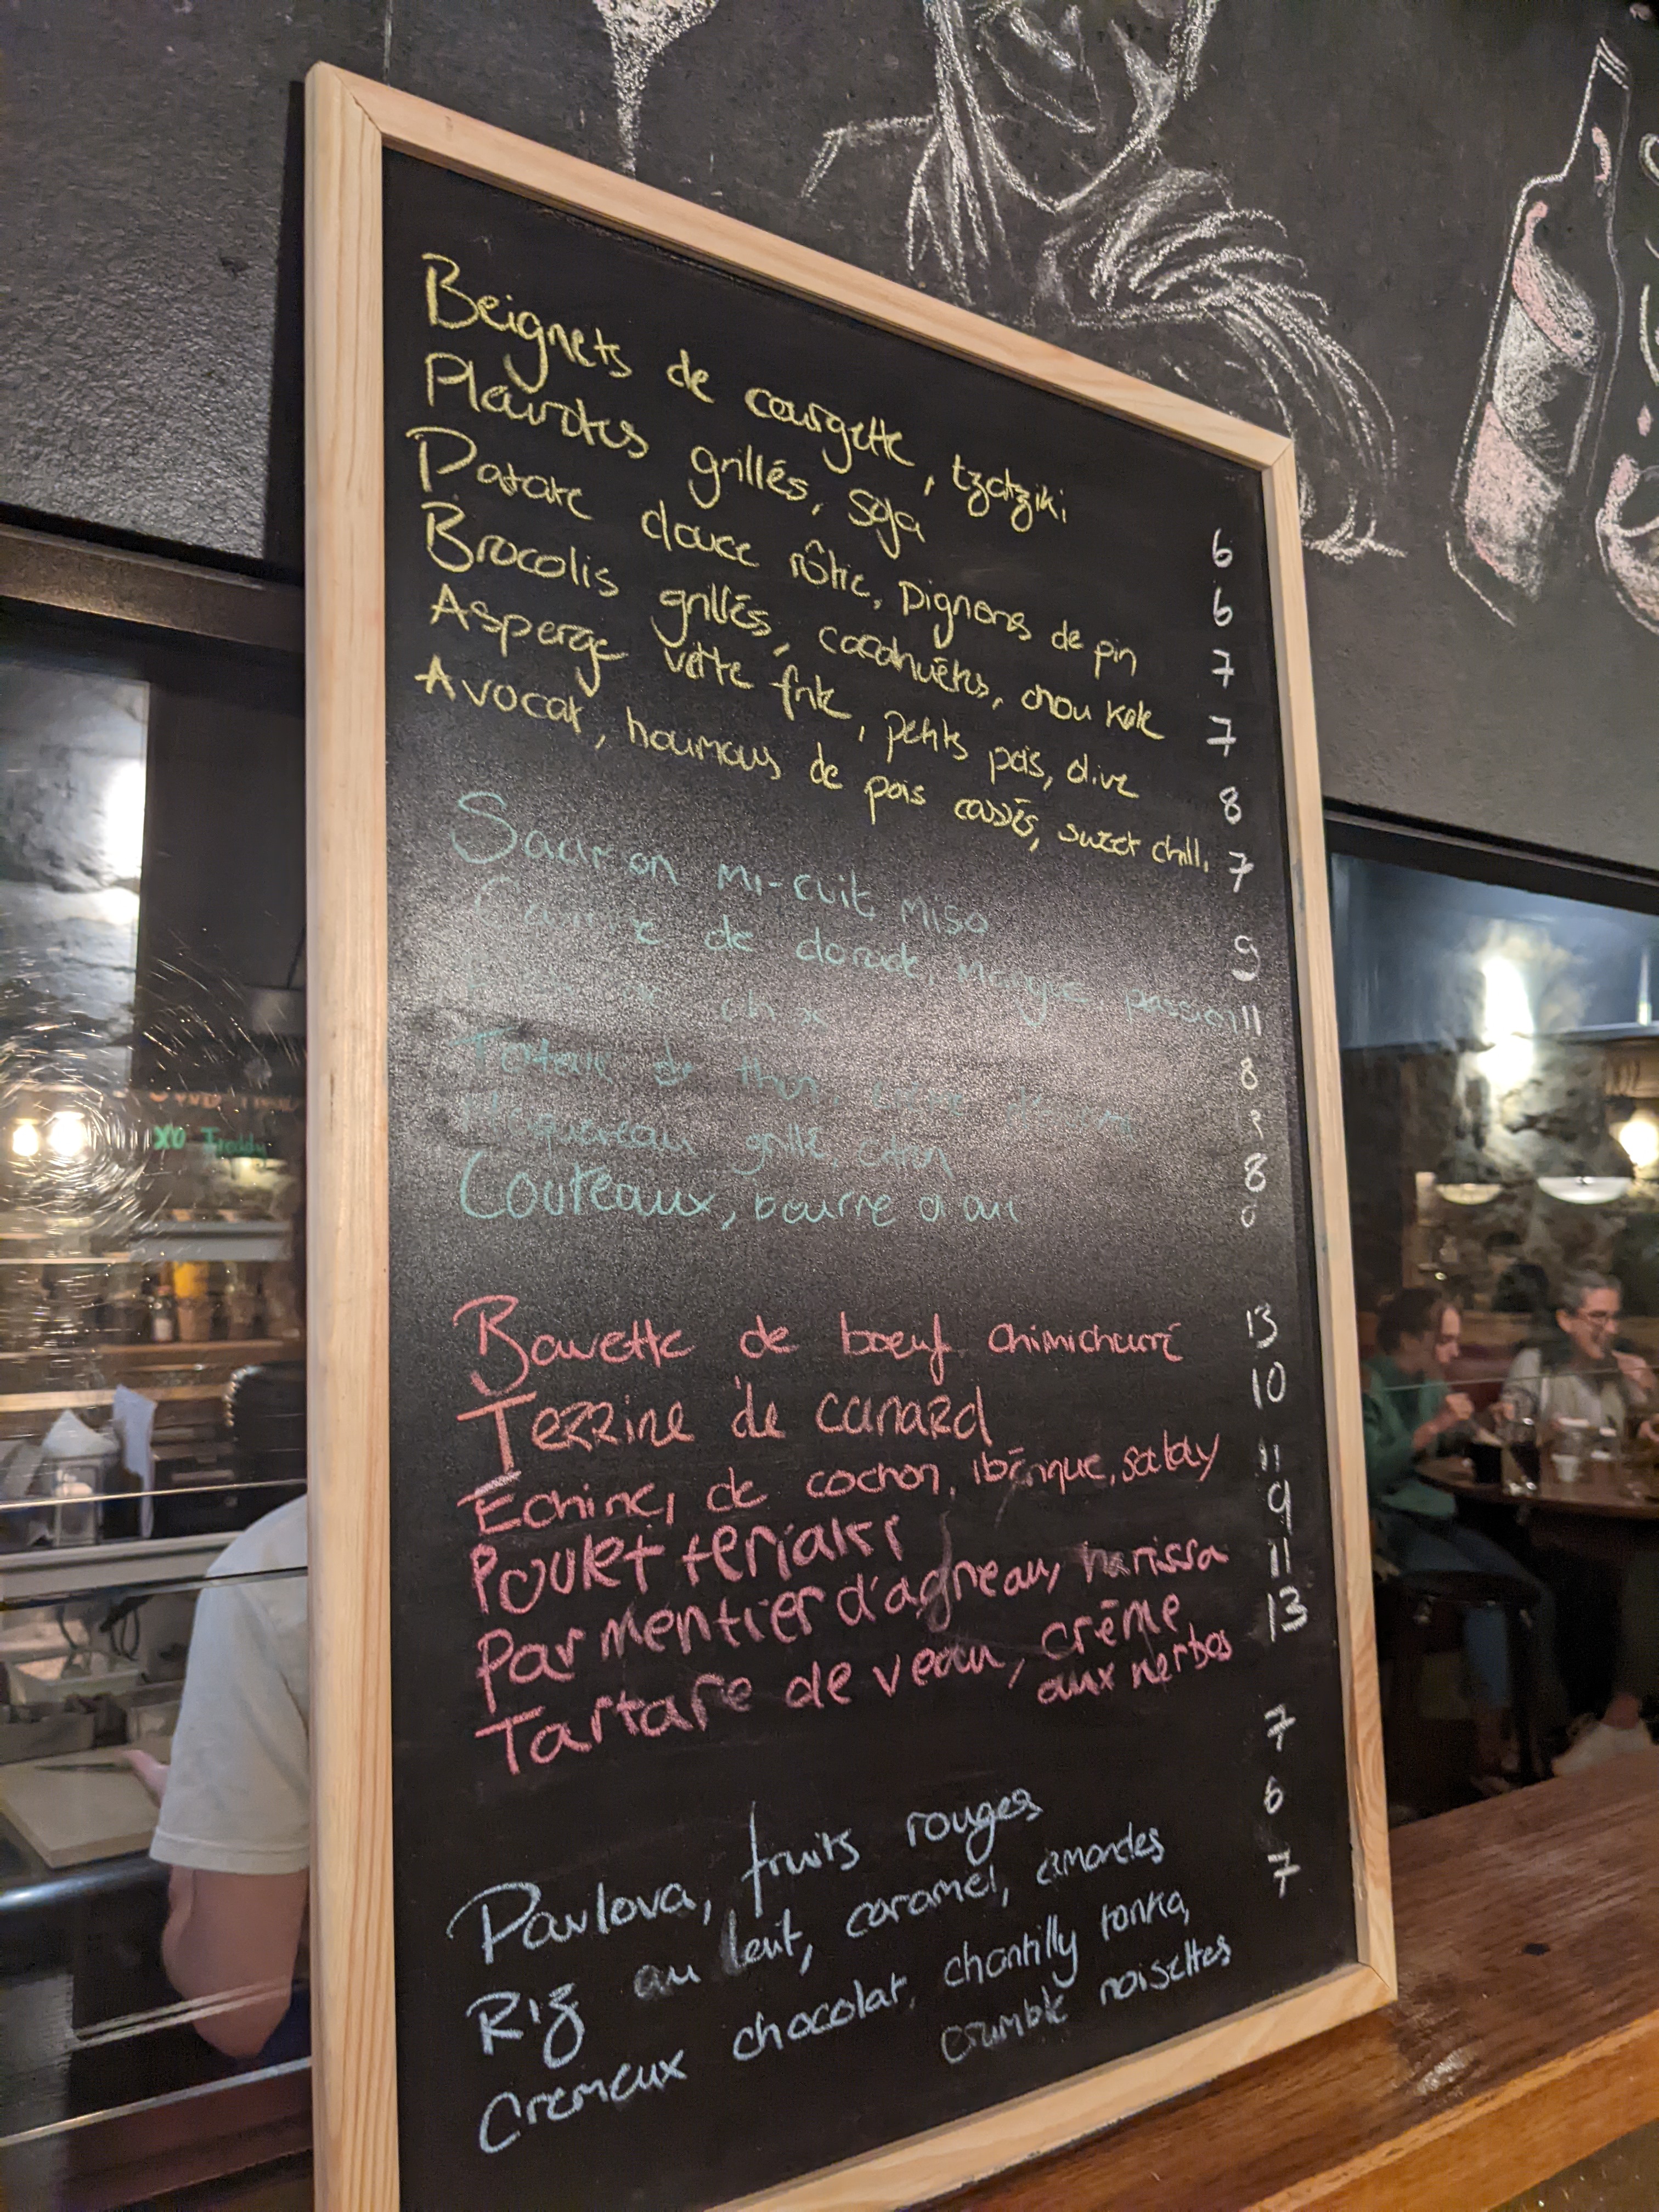 Beignets de courgette, tzatziki 6
Pleurotes grillés, soja 6
Patate douce rôtie, pignons de pin 7
Brocolis grillés, cacahuètes, chou kale 7
Asperge verte frite, petits pois, olive 8
Avocat, houmous de pois cassés, sweet chili 7
Saumon mi-cuit miso 9
de dorade, mangue passion 11
8
Tartare de thon,
Maquereau grillé, citron 8
Couteaux, beurre d'ail
Bavette de bœuf chimichurri 13
Terrine de canard 10
Echine, de cochon, ibérique, satay 11
Poulet teriaki 9
Parmentier d'agneau, harissa 11
Tartare de veau, crème 13
aux herbes
Pavlova, fruits rouges 7
Riz au lait, caramel, amandes 6
Cremeux chocolat, chantilly tonka, 7
crumble noisettes
XO Freddy